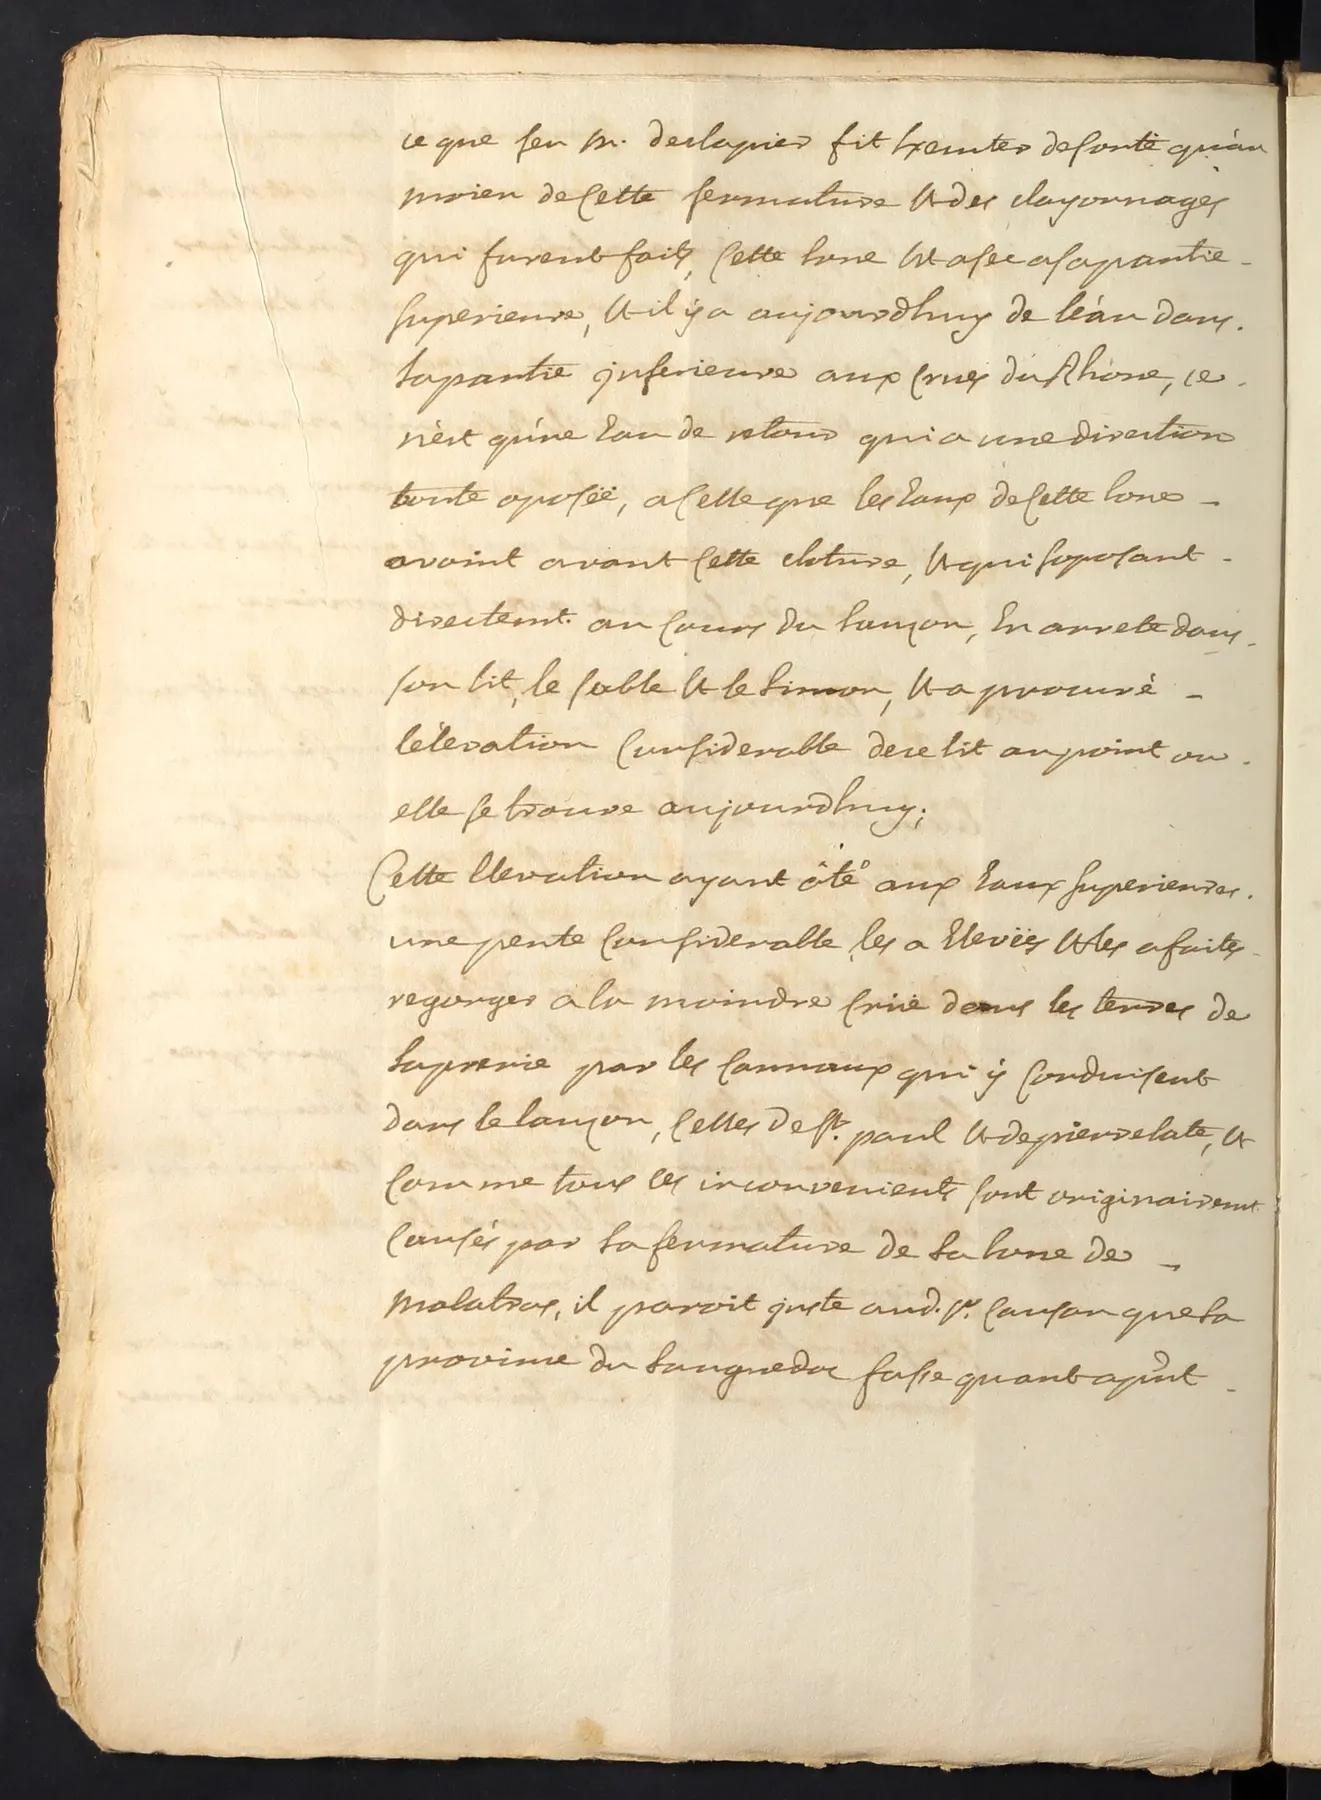 ce que feu m. deslapies fit Exeuter desorte qu'au
moien de Cette fermature Et des clayonnages
qui furent faits, Cette lone Est asec asapartie -
superieure, Et il ÿ a aujourdhuy de léau dans.
lapartie jnferieure aux Crues du Rhone, ce -
n'est qúne Eau de retour qui a une direction
toute oposëë, a Celle que les Eaux de Cette lone -
avoint avant Cette cloture, Et qui soposant -
directemt. au Cours du lauzon, En arrete dans -
son lit, le sable Et le limon, Et a procuré -
lélevation Considerable dece lit aupoint ou -
elle se trouve aujourdhuy;
Cette Elevation ayant ôté aux Eaux superieures.
une pente Considerable, les a Elevëës Et les afaites -
regorger a la moindre Criië dans les terres de
laprerie par les Cannaux qui ÿ Conduisent
dans le lauzon, Celles de St. paul Et depierrelate, Et
Comme tous ces inconvenients sont originairemt
Causés par la fermature de la lone de -
malatras, il paroit juste aud. Sr. Causan que la
province du languedoc fasse quant apñt -